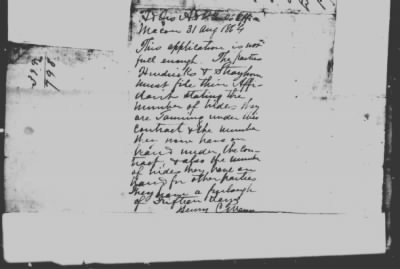 Macon 31 Aug 1864
This application is not
full enough. The parties
Hendricks &
must file their Affi-
davit stating the
number of hides they
are Tanning under this
contract & the number
they now have on
hand under the con-
tract, & also the number
of hides they have on
hand for other parties
They have a furlough
of Fifteen days
Henry C